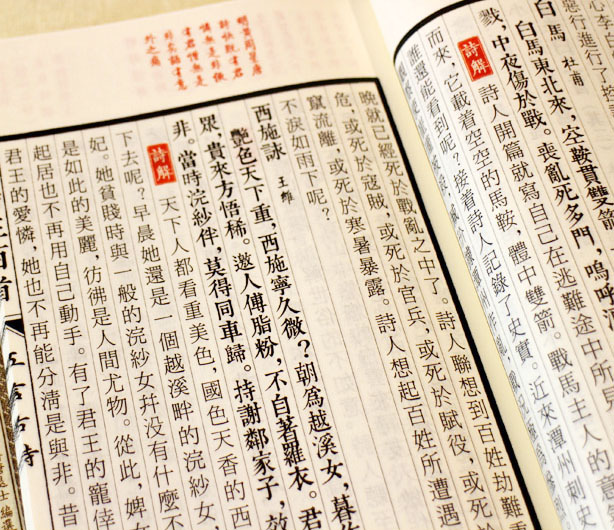 惡行進行了控
白馬 杜甫
白馬東北來,空鞍貫雙箭
戮,中夜傷於戰。喪亂死多門,嗚呼
詩解 詩人開篇就寫自己在逃難途中所
而來,它載着空空的馬鞍,體中雙箭。戰馬主人的意
誰還能看到呢?接着詩人記錄了史實。近來潭州刺史
晚就已經死於戰亂之中了。詩人聯想到百姓劫難
危,或死於寇賊,或死於官兵,或死於賦役,或死
竄流離,或死於寒暑暴露。詩人想起百姓所遭遇
不淚如雨下呢?
西施詠 王維
艷色天下重,西施寧久微?朝爲越溪女,暮
眾,貴來方悟稀。邀人傅脂粉,不自著羅衣。君
非。當時浣紗伴,莫得同車歸。持謝鄰家子,效
詩解 天下人都看重美色,國色天香的西
下去呢?早晨她還是一個越溪畔的浣紗女,
妃。她貧賤時與一般的浣紗女幷没有什麼不
是如此的美麗,彷彿是人間尤物。從此,婢女
起居也不再用自己動手。有了君王的寵倖
君王的愛憐,她也不再能分清是與非。昔
三百首 五言古詩